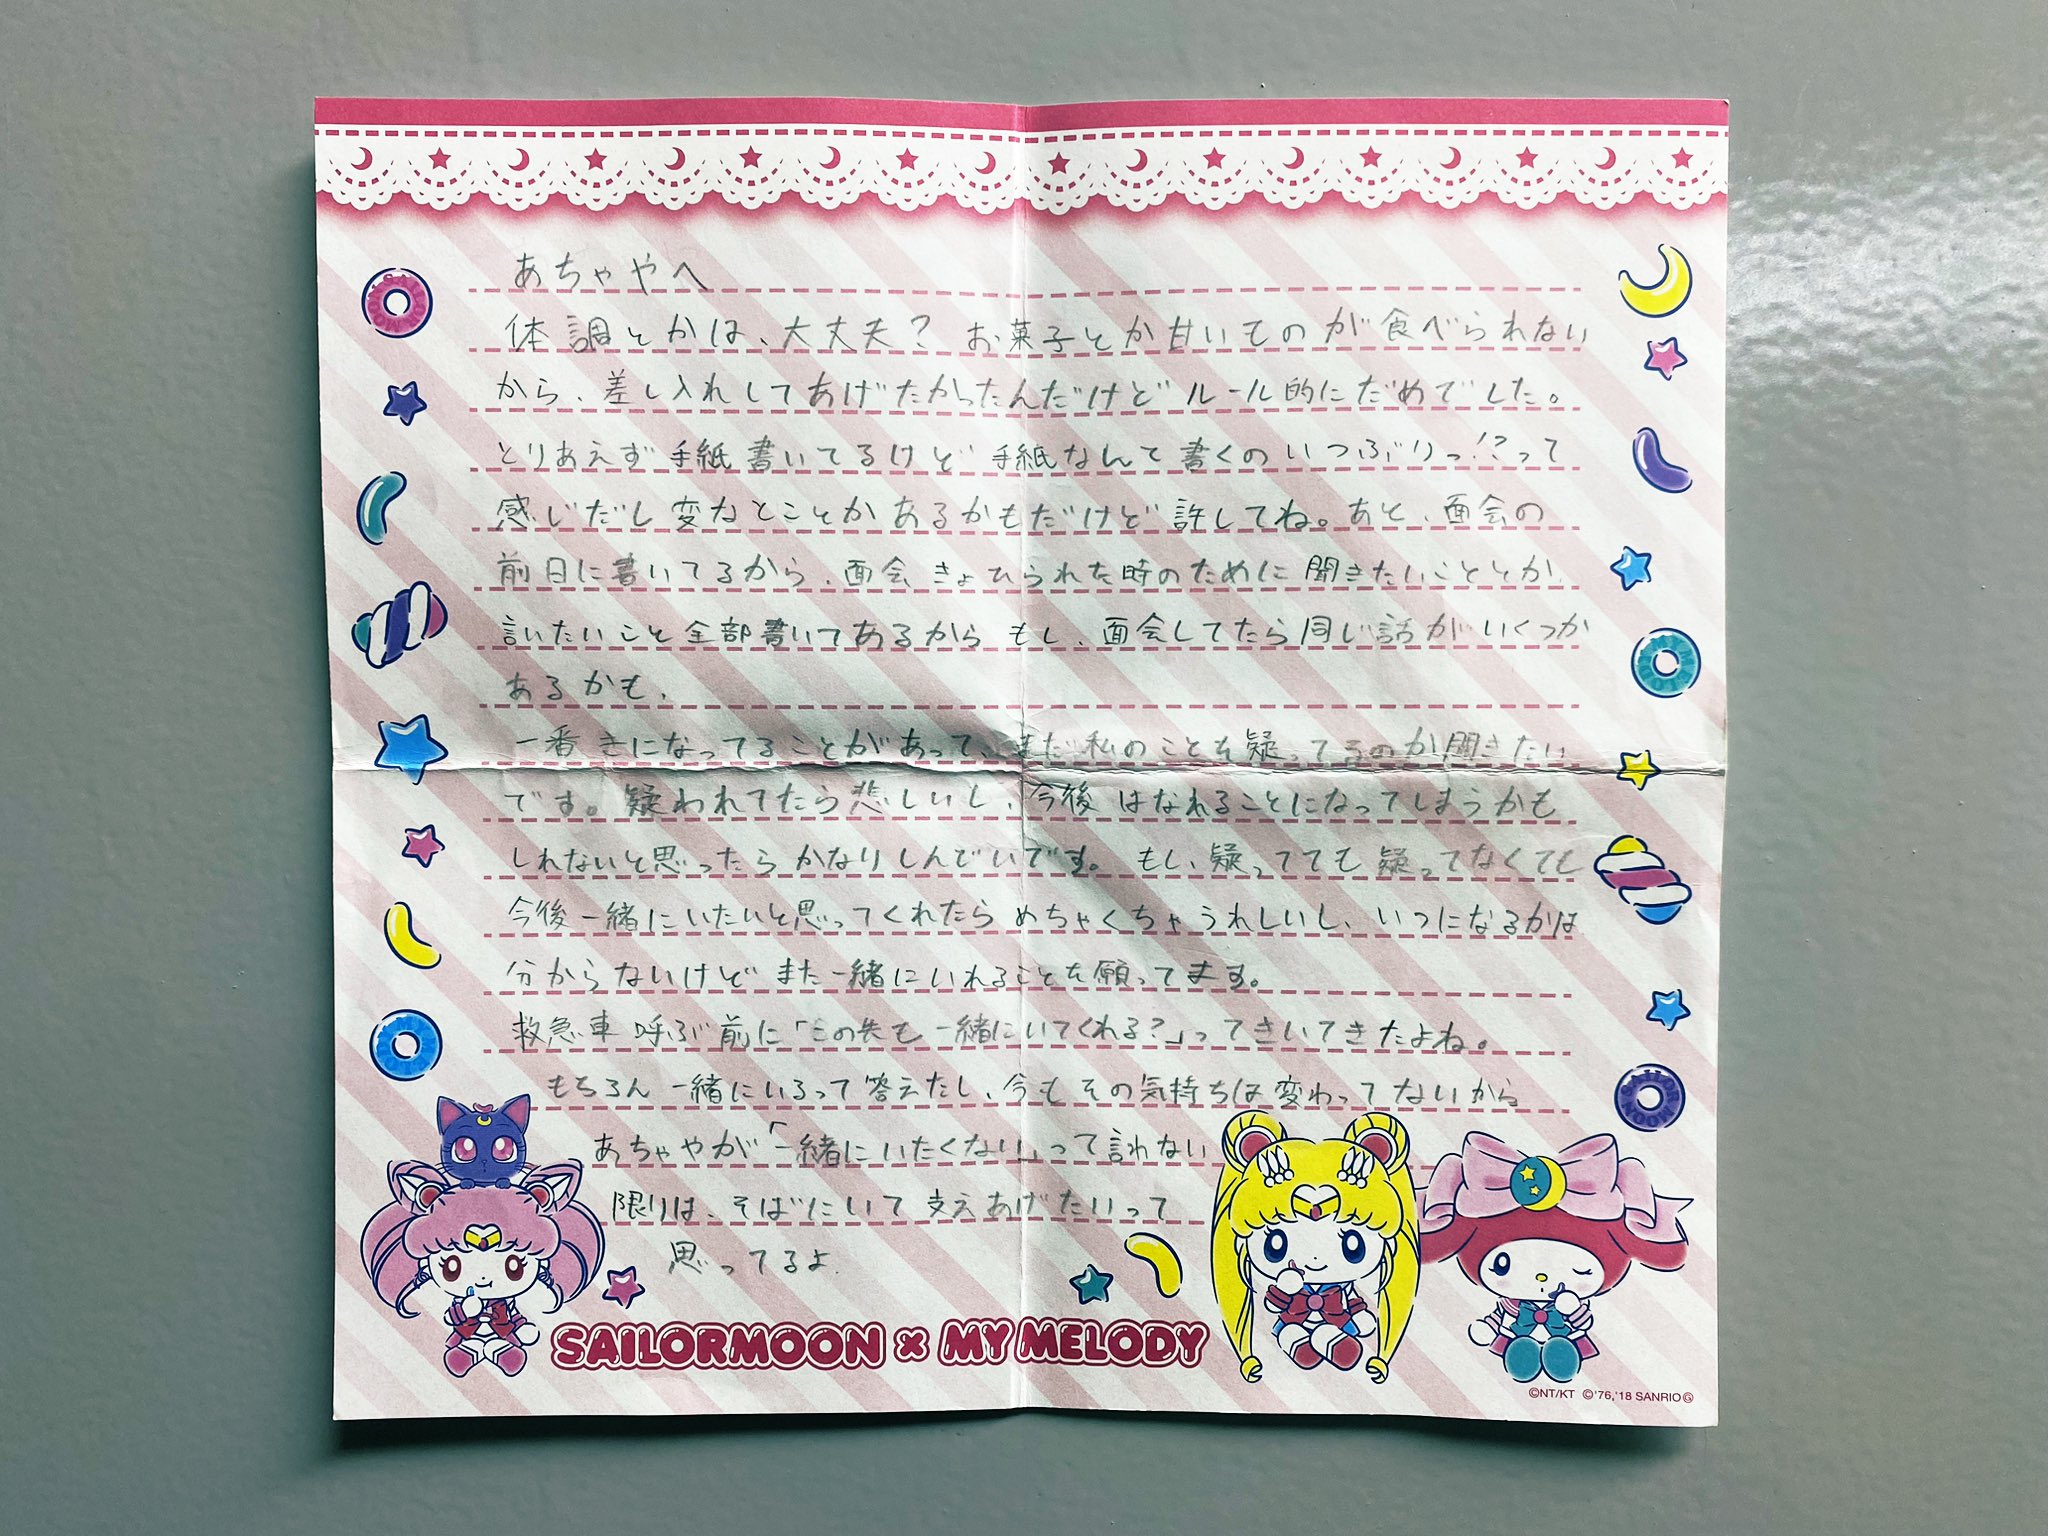 あちゃやへ
体調とかは、大丈夫? お菓子とか甘いものが食べられない
から、差し入れしてあげたかったんだけどルール的にだめでした。
とりあえず手紙書いてるけど手紙なんて書くのいつぶりっ!?って
感じだし変なとことかあるかもだけど許してね。あと、面会の
前日に書いてるから、面会きょひられた時のために聞きたいこととか、
言いたいこと全部書いてあるからもし、面会してたら同じ話がいくつか
あるかも、
一番きになってることがあって、まだ私のことを疑ってるのか聞きたい
です。疑われてたら悲しいし、今後はなれることになってしまうかも
しれないと思ったらかなりしんどいです。もし、疑ってても疑ってなくても
今後一緒にいたいと思ってくれたらめちゃくちゃうれしいし、いつになるかは
分からないけどまた一緒にいれることを願ってます。
救急車呼ぶ前に「この先も一緒にいてくれる?」ってきいてきたよね。
もちろん一緒にいるって答えたし、今もその気持ちは変わってないから
あちゃやが「一緒にいたくない」って言わない
限りは、そばにいて支えあげたいって
思ってるよ.
SAILORMOON × MY MELODY
©NT/KT ©'76,'18 SANRIO Ⓖ